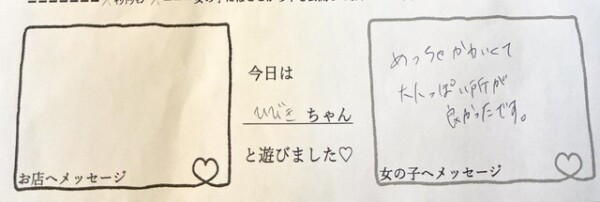 今日は
ひびき ちゃん
と遊びました♡
お店へメッセージ
めっちゃかわいくて
大人っぽい所が
良かったです。
女の子へメッセージ